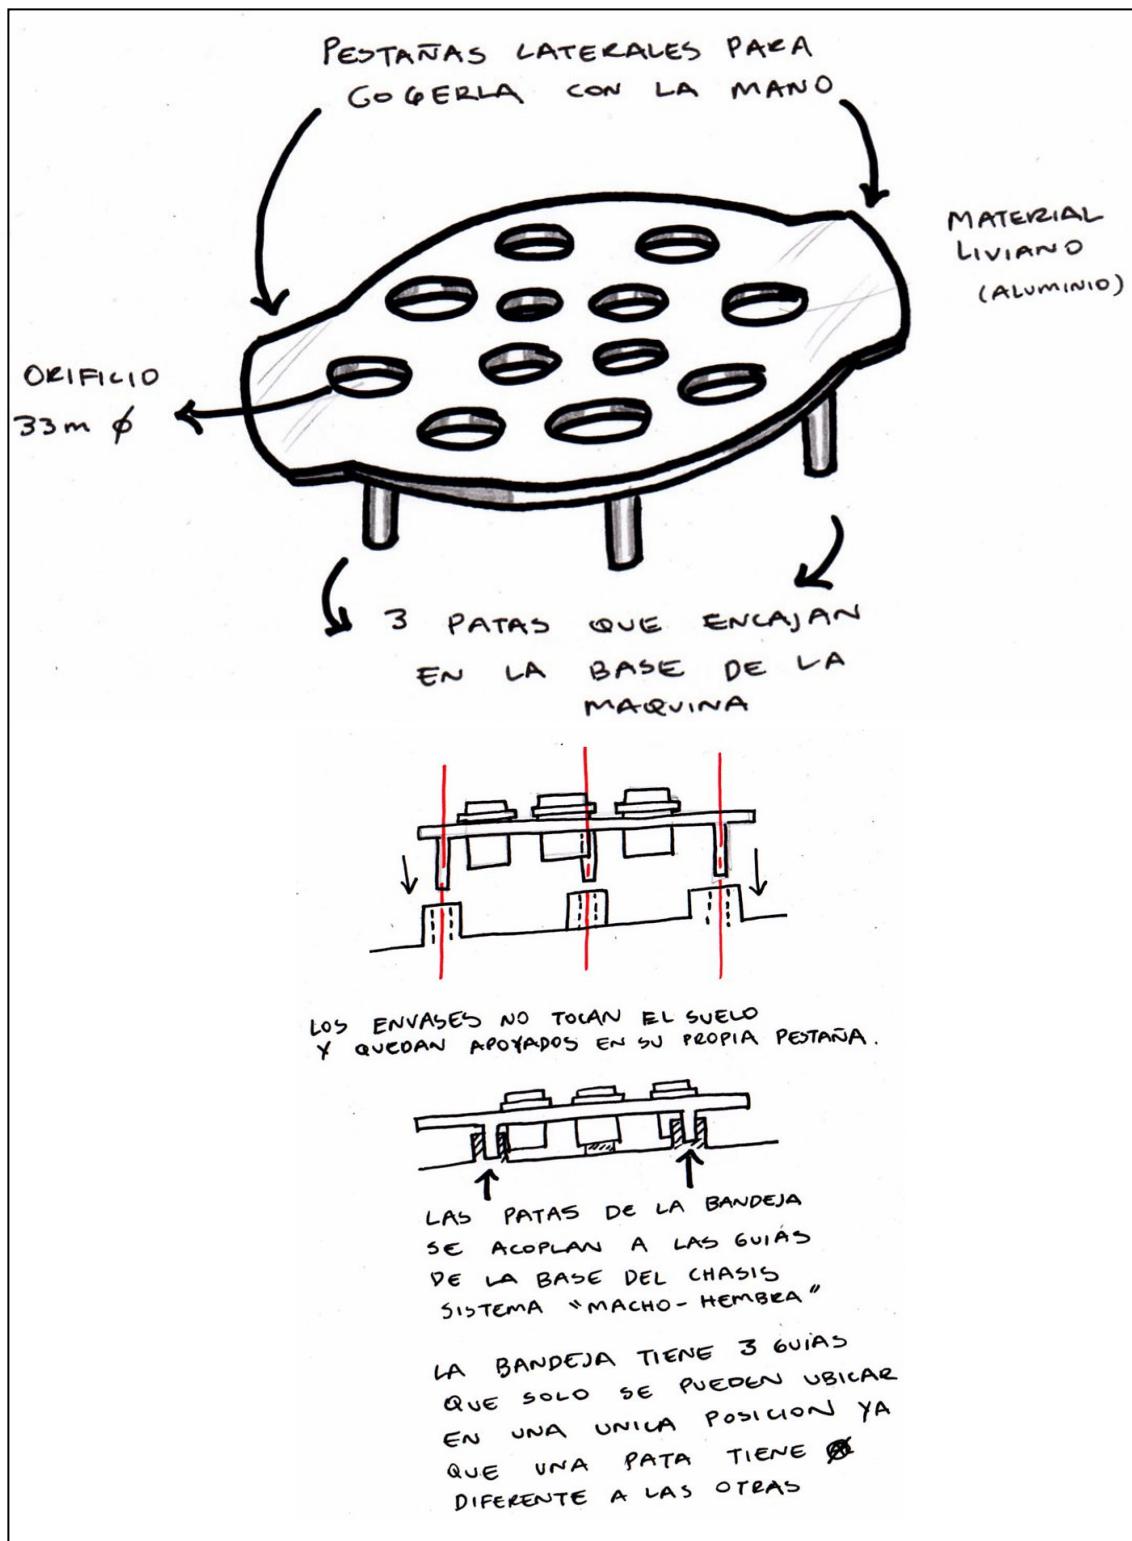 PESTAÑAS LATERALES PARA
COGERLA CON LA MANO
MATERIAL
LIVIANO
(ALUMINIO)
ORIFICIO
33m ϕ
3 PATAS QUE ENCAJAN
EN LA BASE DE LA
MAQUINA
LOS ENVASES NO TOCAN EL SUELO
Y QUEDAN APOYADOS EN SU PROPIA PESTAÑA.
LAS PATAS DE LA BANDEJA
SE ACOPLAN A LAS GUIÁS
DE LA BASE DEL CHASIS
SISTEMA "MACHO-HEMBRA"
LA BANDEJA TIENE 3 GUIAS
QUE SOLO SE PUEDEN UBICAR
EN UNA UNICA POSICION YA
QUE UNA PATA TIENE
DIFERENTE A LAS OTRAS